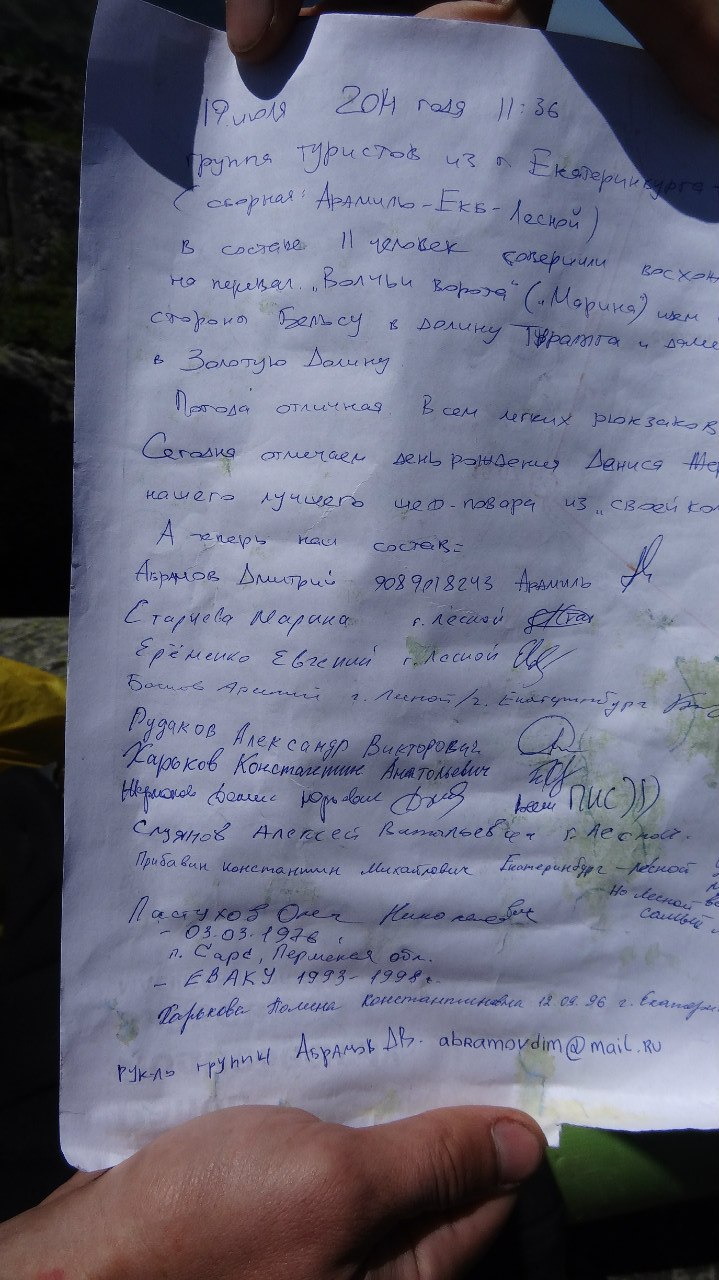 19 июля 2014 года 11:36
Группа туристов из г. Екатеринбурга
(сборная: Арамиль-Екб-Лесной)
В составе 11 человек совершили восхож
на перевал "Волчьи ворота" ("Марина") идем
стороны Бельсу в долину и далее
в Золотую Долину
Погода отличная. Всем легких рюкзаков
Сегодня отмечаем день рождения Дениса
нашего лучшего шеф-повара из "своей ком
А теперь наш состав:
Абрамов Дмитрий 9089018243 Арамиль
Старцева Марина г. Лесной
Ерёменко Евгений г. Лесной
Арсений г. Лесной/г. Екатеринбург
Рудаков Александр Викторович
Харьков Константин Анатольевич
Денис Юрьевич Всем ПИС))
Алексей Витальевич г. Лесной.
Прибавин Константин Михайлович Екатеринбург - Лесной
Но Лесной
самый
Пастухов Олег Николаевич
- 03.03.1976
п. Сарс, Пермская обл.
- ЕВАКУ 1993-1998г.
Харькова Полина Константиновна 12.09.96 г. Екатери
рук-ль группы Абрамов ДВ. abramovdim@mail.ru